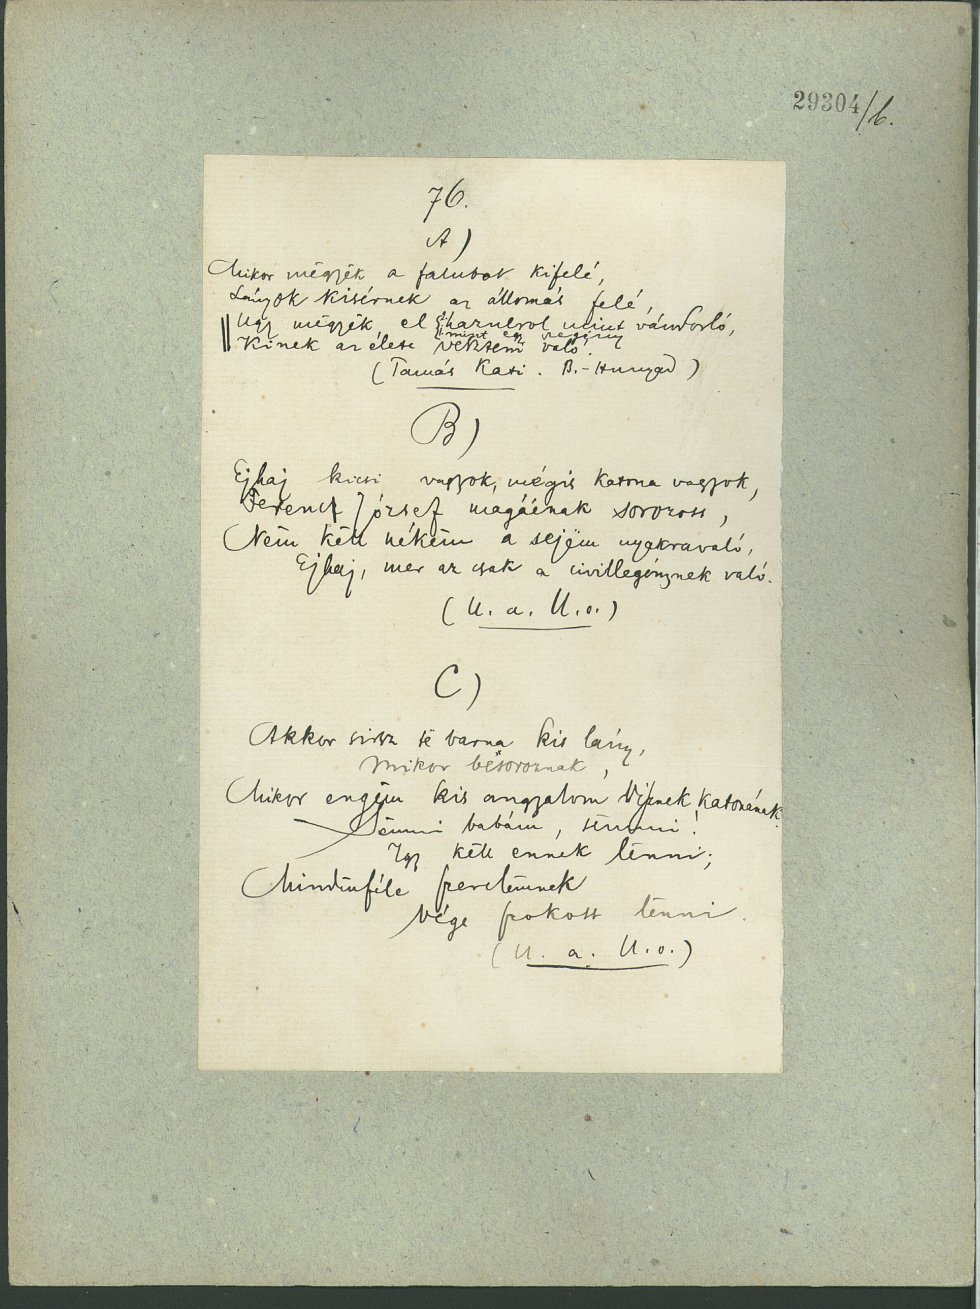 29304/b.
76.
A)
Mikor mëgyëk a falubol kifelé,
Lányok kisérnek az állomás felé,
Ugy mëgyëk el hazulrol mint vándorló,
mint egy szegény
Kinek az élete vëkzeni való.
(Tamás Kati. B.-Hunyad)
B)
Ejhaj kicsi vagyok, mégis katona vagyok,
Ferencz József magáénak sorozott,
Nëm këll nékëm a sejëm nyakravaló,
Ejhaj, mer az csak a civillegénynek való.
(U. a. U.o.)
C)
Akkor sirsz të barna kis lány,
Mikor bësoroznak,
Mikor engëm kis angyalom Visznek katonának.
Sëmmi babám, sëmmi!
Igy këll ennek lënni;
Mindënféle szerelëmnek
Vége szokott lënni.
(U. a. U.o.)